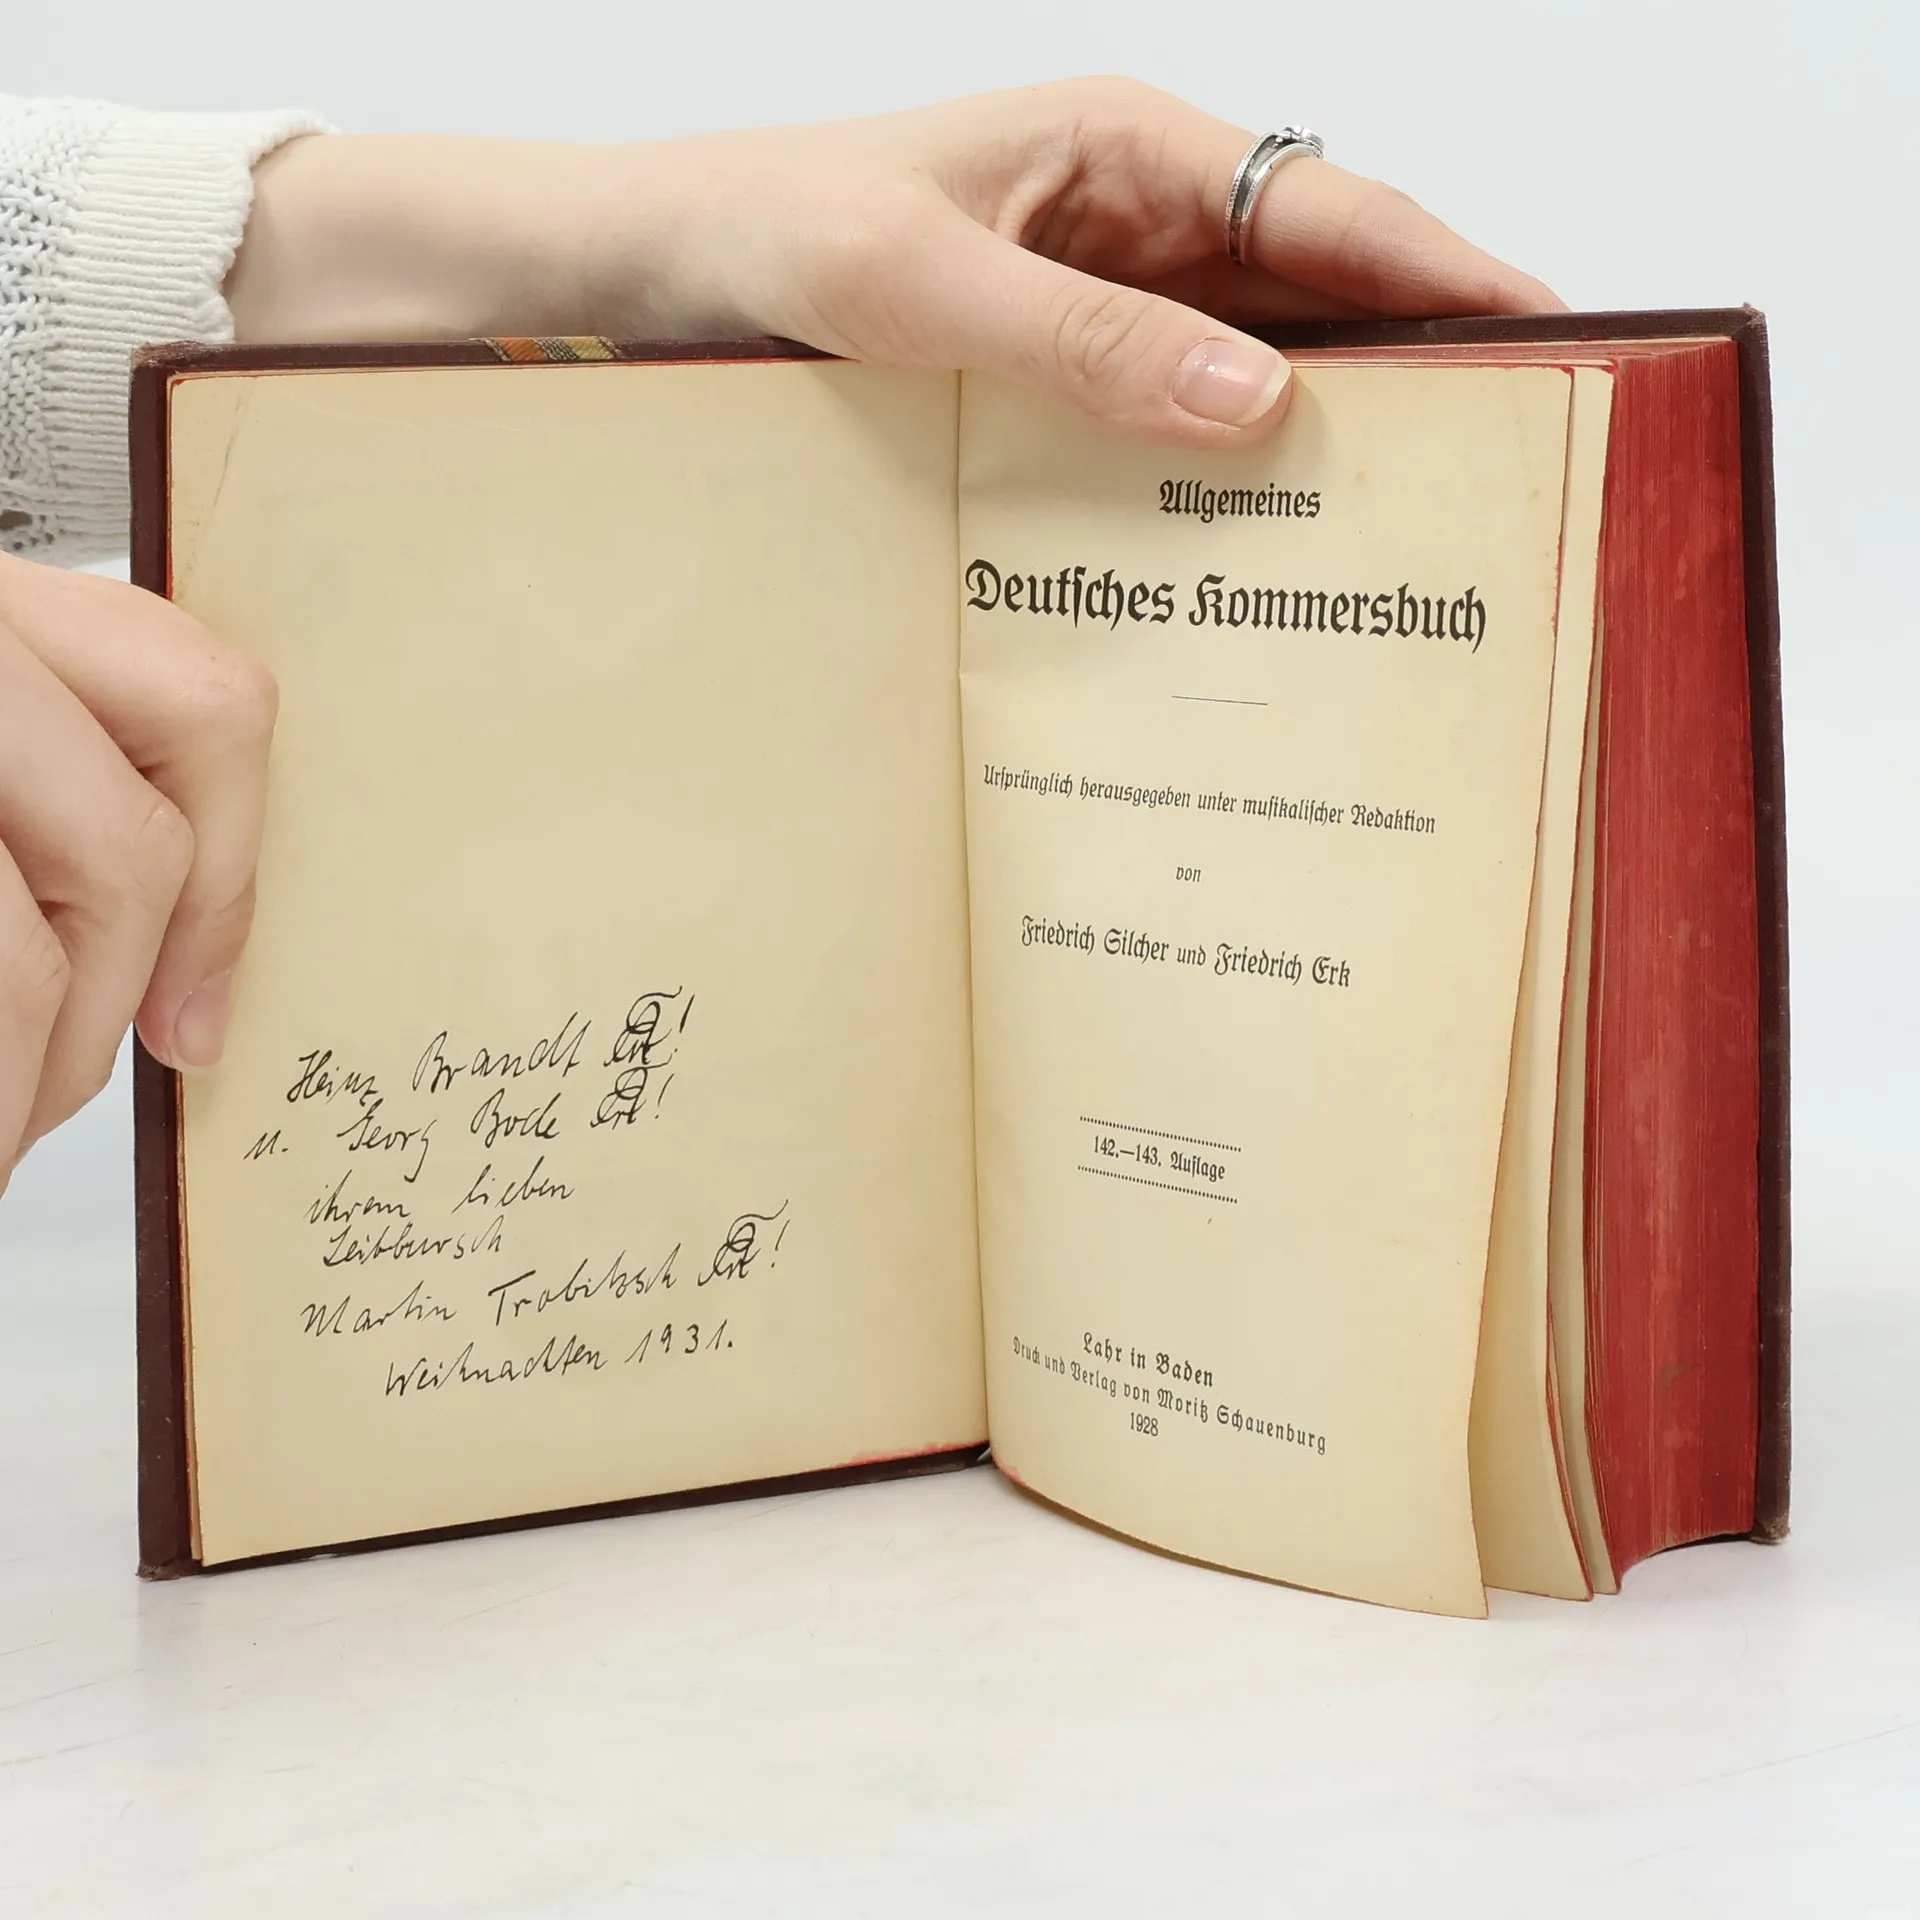 Heinz Brandt
u. Georg Bode
ihrem lieben
Leibbursch
Martin Trobitzsch
Weihnachten 1931.
Allgemeines
Deutſches Kommersbuch
Urſprünglich herausgegeben unter muſikaliſcher Redaktion
von
Friedrich Silcher und Friedrich Erk
142.—143. Auflage
Lahr in Baden
Druck und Verlag von Moritz Schauenburg
1928